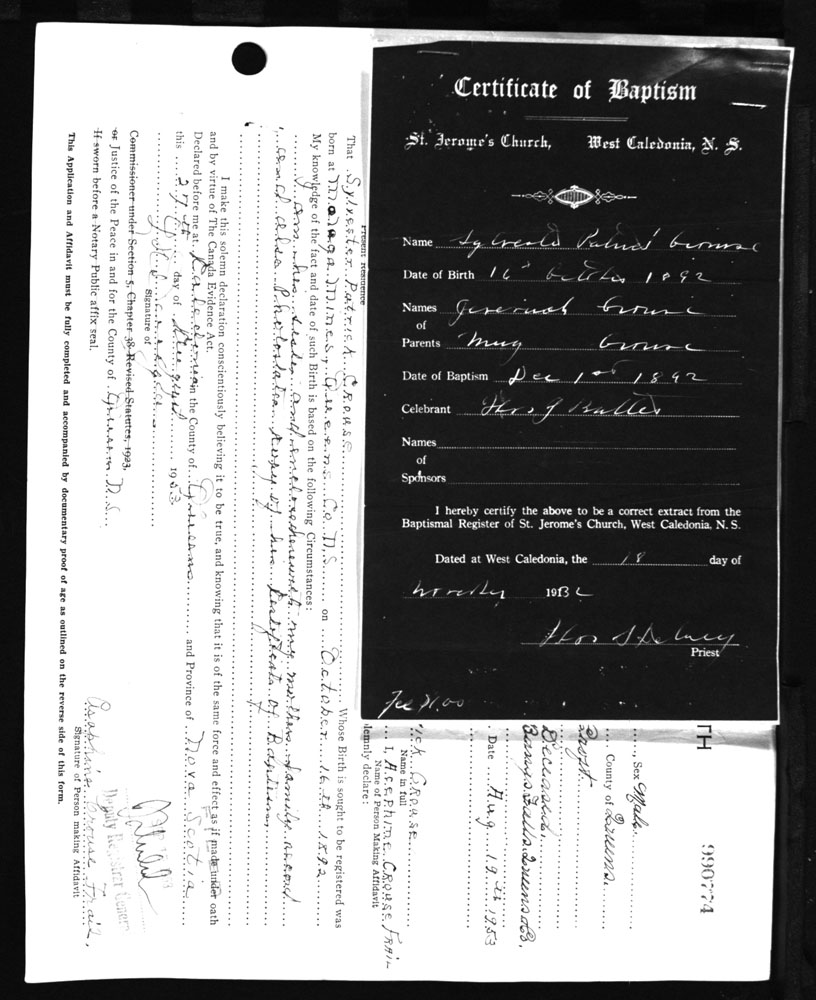 Certificate of Baptism
St. Jerome's Church, West Caledonia, N. S.
Name
Date of Birth 16 1892
Names Jeremiah Crouse
of
Parents Mary Crouse
Date of Baptism Dec 1st 1892
Celebrant Thos J Butler
Names
of
Sponsors
I hereby certify the above to be a correct extract from the
Baptismal Register of St. Jerome's Church, West Caledonia, N. S.
Dated at West Caledonia, the 18 day of
193
Priest
TH
990774
Sex Male.
County of Queens.
Deceased.
Date Aug 19th 1953
Crouse
Name in full
I, Crouse Frail
Name of Person Making Affidavit
lemnly declare:
Present Residence
That Sylvester Patrick Crouse Whose Birth is sought to be registered was
born at Malaga Mines, Queens Co N.S. on October 16th 1892
My knowledge of the fact and date of such Birth is based on the following Circumstances:
my mothers family record
and also Photostatic of his of Baptism,
I make this solemn declaration conscientiously believing it to be true, and knowing that it is of the same force and effect as if made under oath
and by virtue of The Canada Evidence Act.
Declared before me at in the County of Queens and Province of Nova Scotia
this 27th day of August 1953
Signature of
Commissioner under Section 5, Chapter 38 Revised Statutes, 1923.
or Justice of the Peace in and for the County of Queens N.S.
If sworn before a Notary Public affix seal.
Crouse Frail,
Signature of Person making Affidavit
Deputy Registrar General
This Application and Affidavit must be fully completed and accompanied by documentary proof of age as outlined on the reverse side of this form.